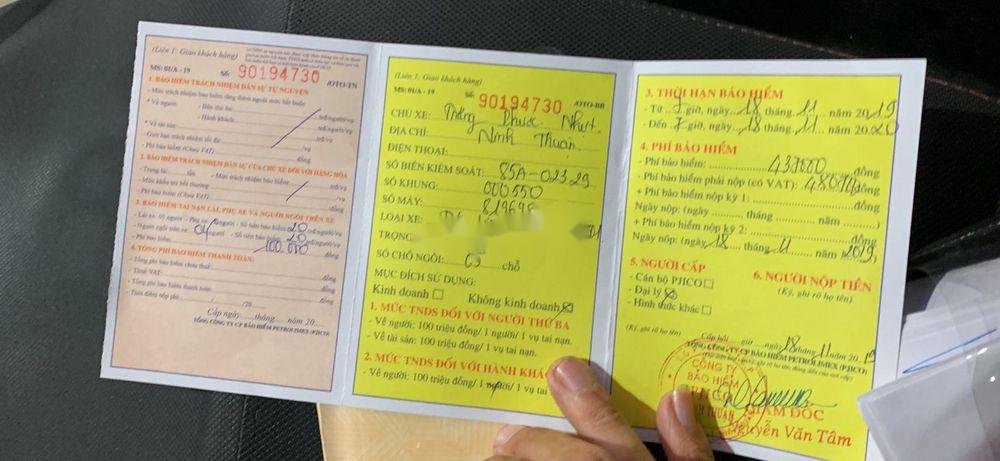 (Liên 1: Giao khách hàng)
MS: 01/A - 19 Số: 90194730 /OTO-TN
1. BẢO HIỂM TRÁCH NHIỆM DÂN SỰ TỰ NGUYỆN
- Mức trách nhiệm bảo hiểm tăng thêm ngoài mức bắt buộc
* Về người: - Bên thứ ba tr.đ/người/vụ
- Hành khách tr.đ/người/vụ
* Về tài sản: tr.đ/vụ
- Giới hạn trách nhiệm tối đa: /vụ
- Phí bảo hiểm (Chưa VAT) đồng
2. BẢO HIỂM TRÁCH NHIỆM DÂN SỰ CỦA CHỦ XE ĐỐI VỚI HÀNG HÓA
- Trọng tải: tấn - Mức trách nhiệm bảo hiểm tr.đ/vụ
- Mức khấu trừ bồi thường
- Phí bảo hiểm (Chưa VAT): đồng
3. BẢO HIỂM TAI NẠN LÁI, PHỤ XE VÀ NGƯỜI NGỒI TRÊN XE
- Lái xe: 01 người - Phụ xe người - Số tiền bảo hiểm: 20 tr.đ/người/vụ
- Người ngồi trên xe: 04 người - Số tiền bảo hiểm: 20 tr.đ/người/vụ
- Phí bảo hiểm: 100.000 đồng
4. TỔNG PHÍ BẢO HIỂM THANH TOÁN:
- Tổng phí bảo hiểm chưa thuế: đồng
- Thuế VAT: đồng
- Tổng phí bảo hiểm thanh toán: đồng
- Thời điểm nộp phí: / /20
Cấp ngày tháng năm 20
TỔNG CÔNG TY CP BẢO HIỂM PETROLIMEX (PJICO)
(Liên 1: Giao khách hàng)
MS: 01/A - 19 Số: 90194730 /OTO-BB
CHỦ XE: Phước Nhựt
ĐỊA CHỈ: Ninh Thuận
ĐIỆN THOẠI:
SỐ BIỂN KIỂM SOÁT: 85A-02329
SỐ KHUNG: 000550
SỐ MÁY: 819696
LOẠI XE:
TRỌNG
SỐ CHỖ NGỒI: 05 chỗ
MỤC ĐÍCH SỬ DỤNG:
Kinh doanh ☐ Không kinh doanh ☒
1. MỨC TNDS ĐỐI VỚI NGƯỜI THỨ BA
- Về người: 100 triệu đồng/ 1 người/ 1 vụ tai nạn.
- Về tài sản: 100 triệu đồng/ 1 vụ tai nạn.
2. MỨC TNDS ĐỐI VỚI HÀNH KHÁCH
- Về người: 100 triệu đồng/ 1 người/ 1 vụ tai nạn.
3. THỜI HẠN BẢO HIỂM
- Từ 7 giờ, ngày 18 tháng 11 năm 2019
- Đến 7 giờ, ngày 18 tháng 11 năm 2020
4. PHÍ BẢO HIỂM
- Phí bảo hiểm: 437000 đồng
- Phí bảo hiểm phải nộp (có VAT): 480700 đồng
+ Phí bảo hiểm nộp kỳ 1: đồng
Ngày nộp: (ngày tháng năm )
+ Phí bảo hiểm nộp kỳ 2: đồng
Ngày nộp: (ngày 18 tháng 11 năm 2019)
5. NGƯỜI CẤP
- Cán bộ PJICO ☐
- Đại lý ☒
- Hình thức khác ☐
6. NGƯỜI NỘP TIỀN
(Ký, ghi rõ họ tên)
(Ký, ghi rõ họ tên)
Cấp hồi: giờ ngày 18 tháng 11 năm 2019
TỔNG CÔNG TY CP BẢO HIỂM PETROLIMEX (PJICO)
CÔNG TY
BẢO HIỂM
PJICO
NINH THUẬN
GIÁM ĐỐC
Nguyễn Văn Tâm